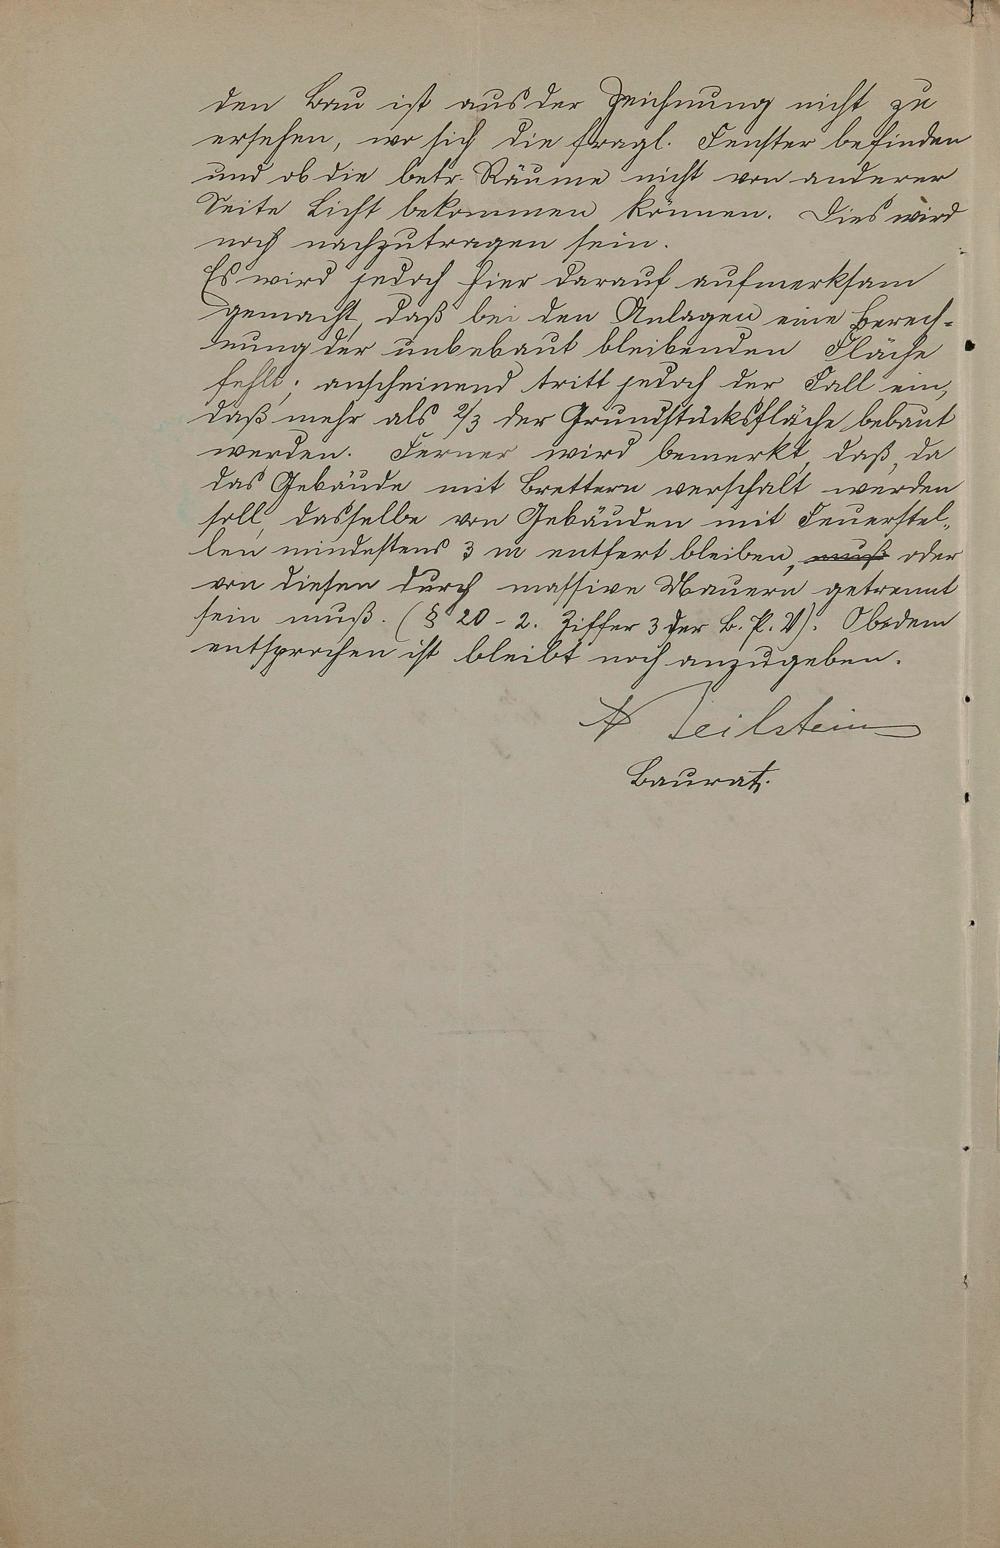 den Bau ist aus der Zeichnung nicht zu
ersehen, wo sich die fragl. Fenster befinden
und ob die betr. Räume nicht von anderer
Seite Licht bekommen können. Dies wird
noch nachzutragen sein.
Es wird jedoch hier darauf aufmerksam
gemacht, daß bei den Anlagen eine Berech-
nung der unbebaut bleibenden Fläche
fehlt; anscheinend tritt jedoch der Fall ein,
daß mehr als 2/3 der Grundstücksfläche bebaut
werden. Ferner wird bemerkt, daß, da
das Gebäude mit Brettern verschalt werden
soll, dasselbe von Gebäuden mit Feuerstel-
len mindestens 3 m entfert bleiben, muß oder
von diesen durch massive Mauern getrennt
sein muß. (§ 20 - 2. Ziffer 3 der B. P. V). Ob dem
entsprochen ist bleibt noch anzugeben.
Beilstein
Baurat.